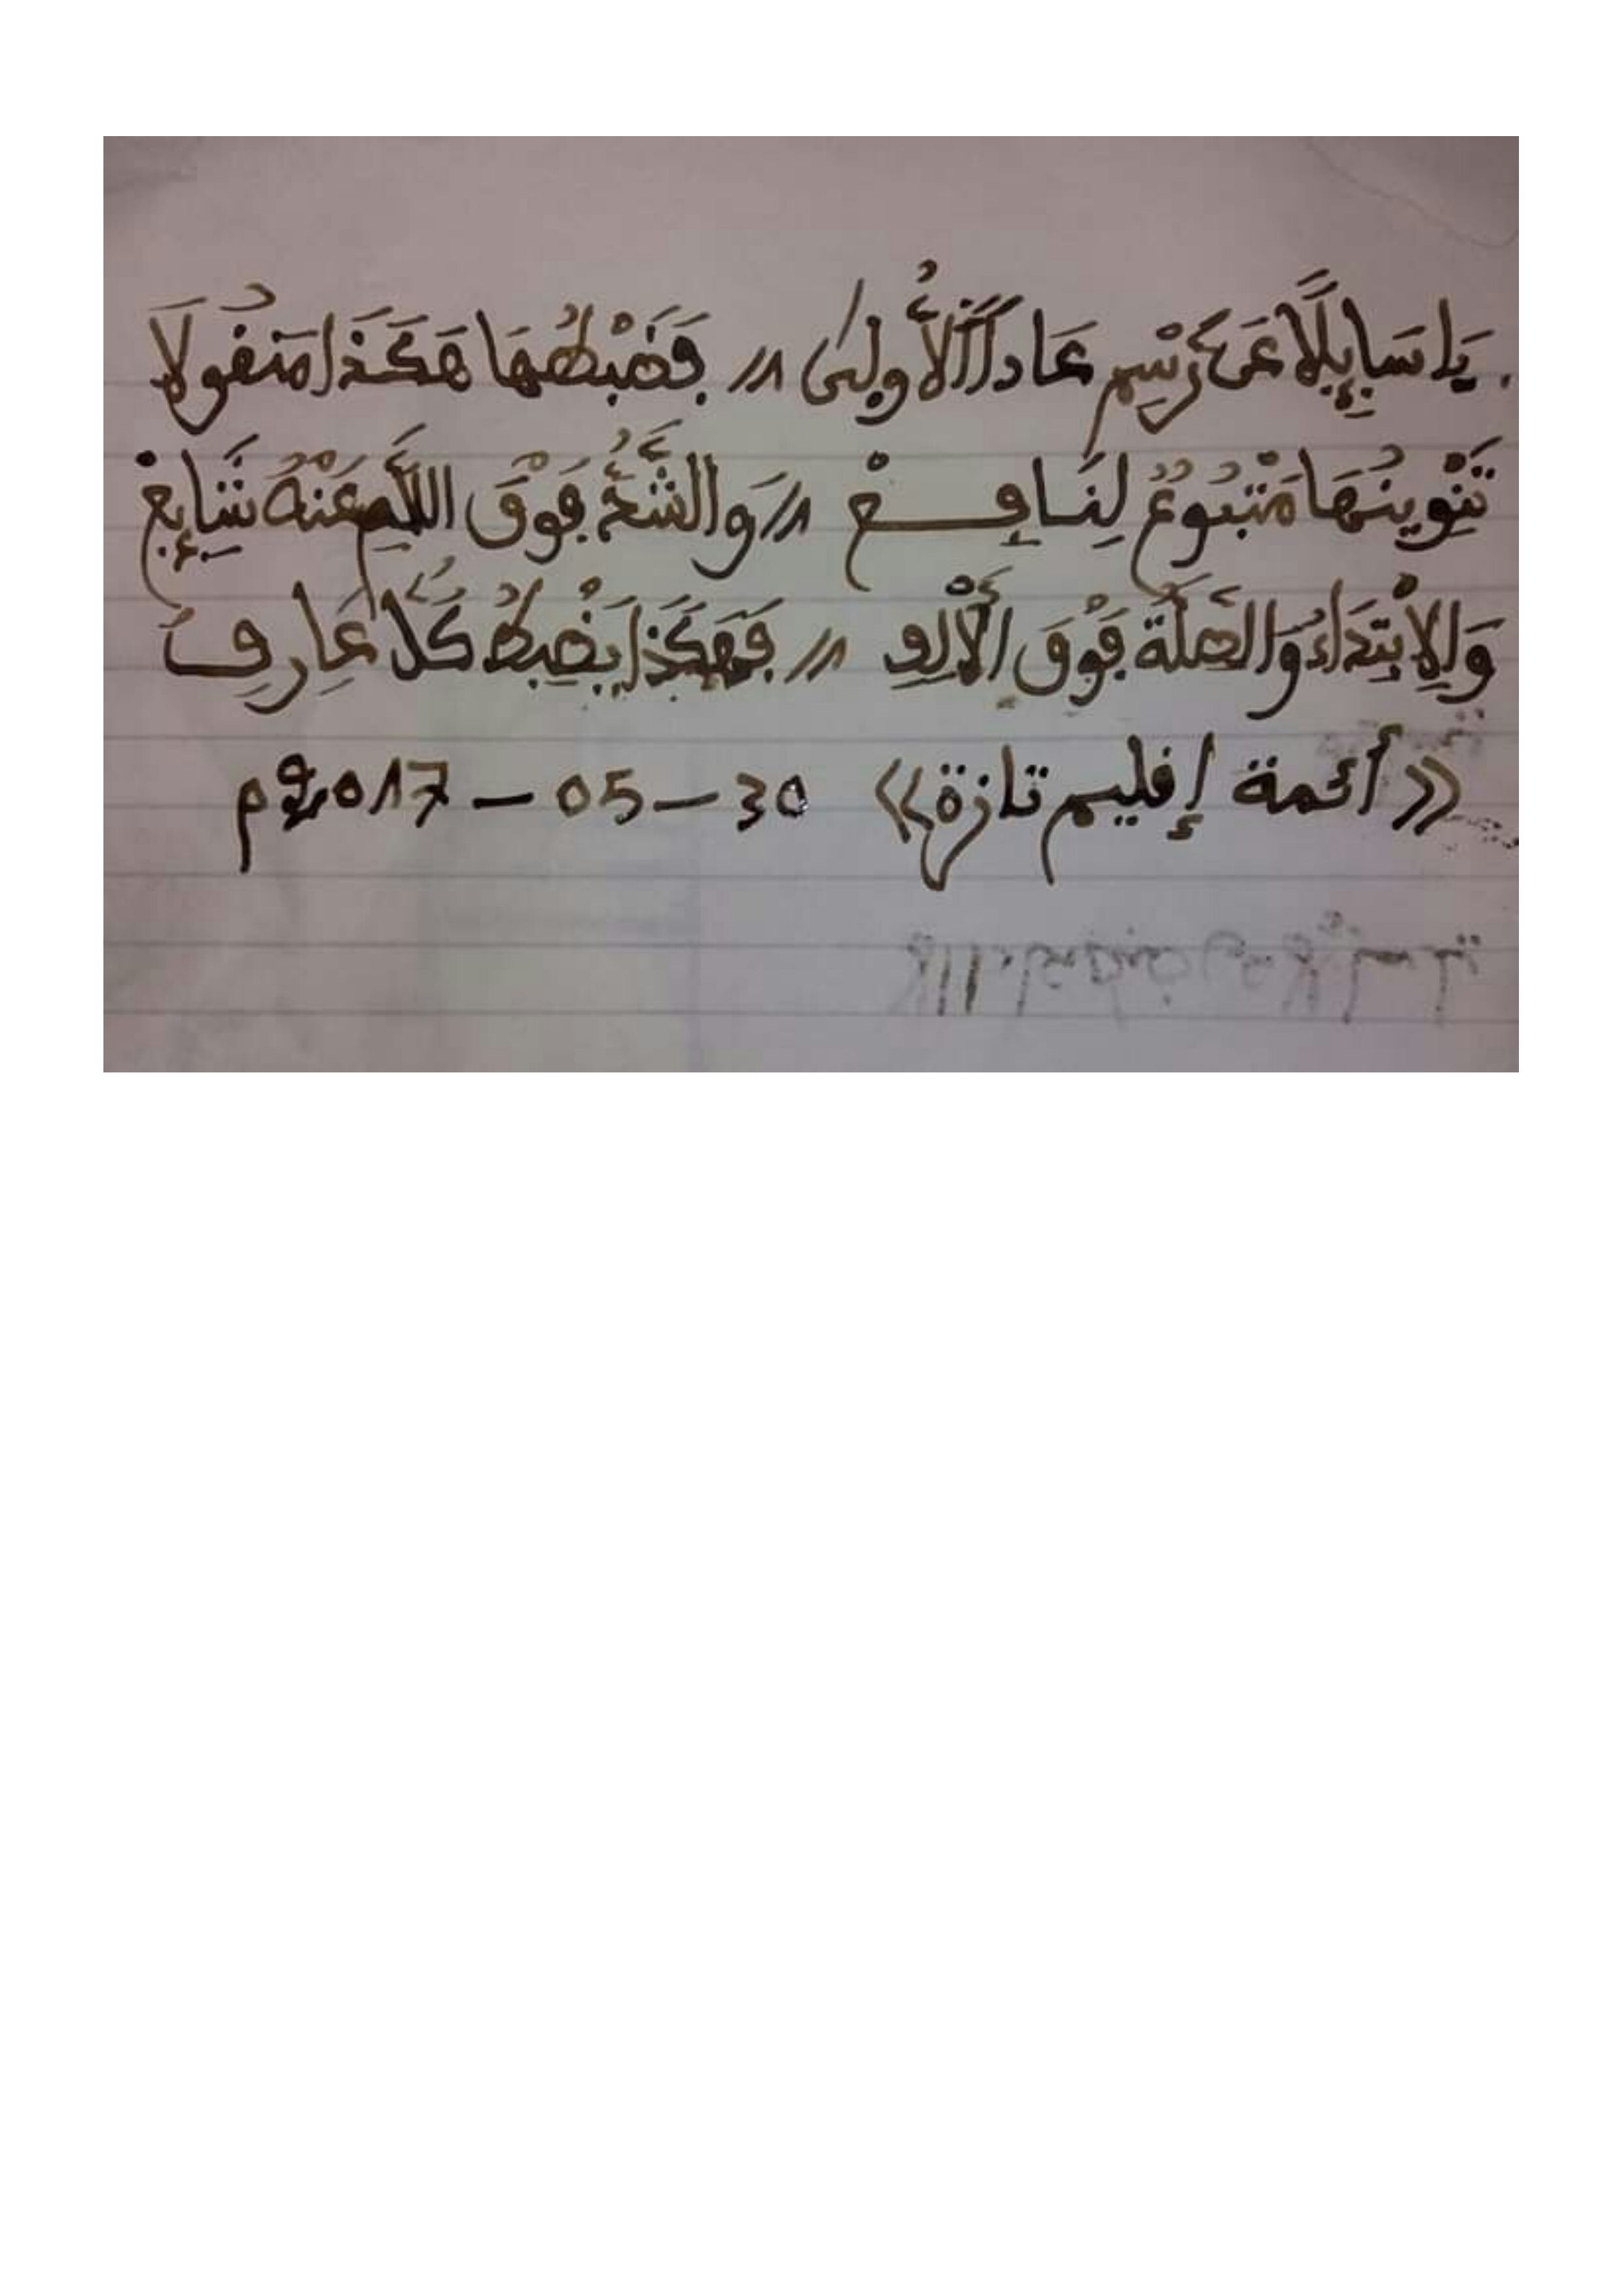 يَا سَائِلًا عَن رَسْمِ عَادًا الْأُولَىٰ // فَضَبْطُهَا هَكَذَا مَنقُولَا
تَنْوِينُهَا مَتْبُوعٌ لِنَافِعْ // وَالشَّدُّ فَوْقَ اللَّامِ عَنْهُ شَائِعْ
وَالِابْتِدَاءُ وَالصِّلَةُ فَوْقَ الْأَلِفْ // فَهَكَذَا يَضْبِطُ كُلُّ عَارِفْ
«أئمة إقليم تازة» 30 - 05 - 2017م